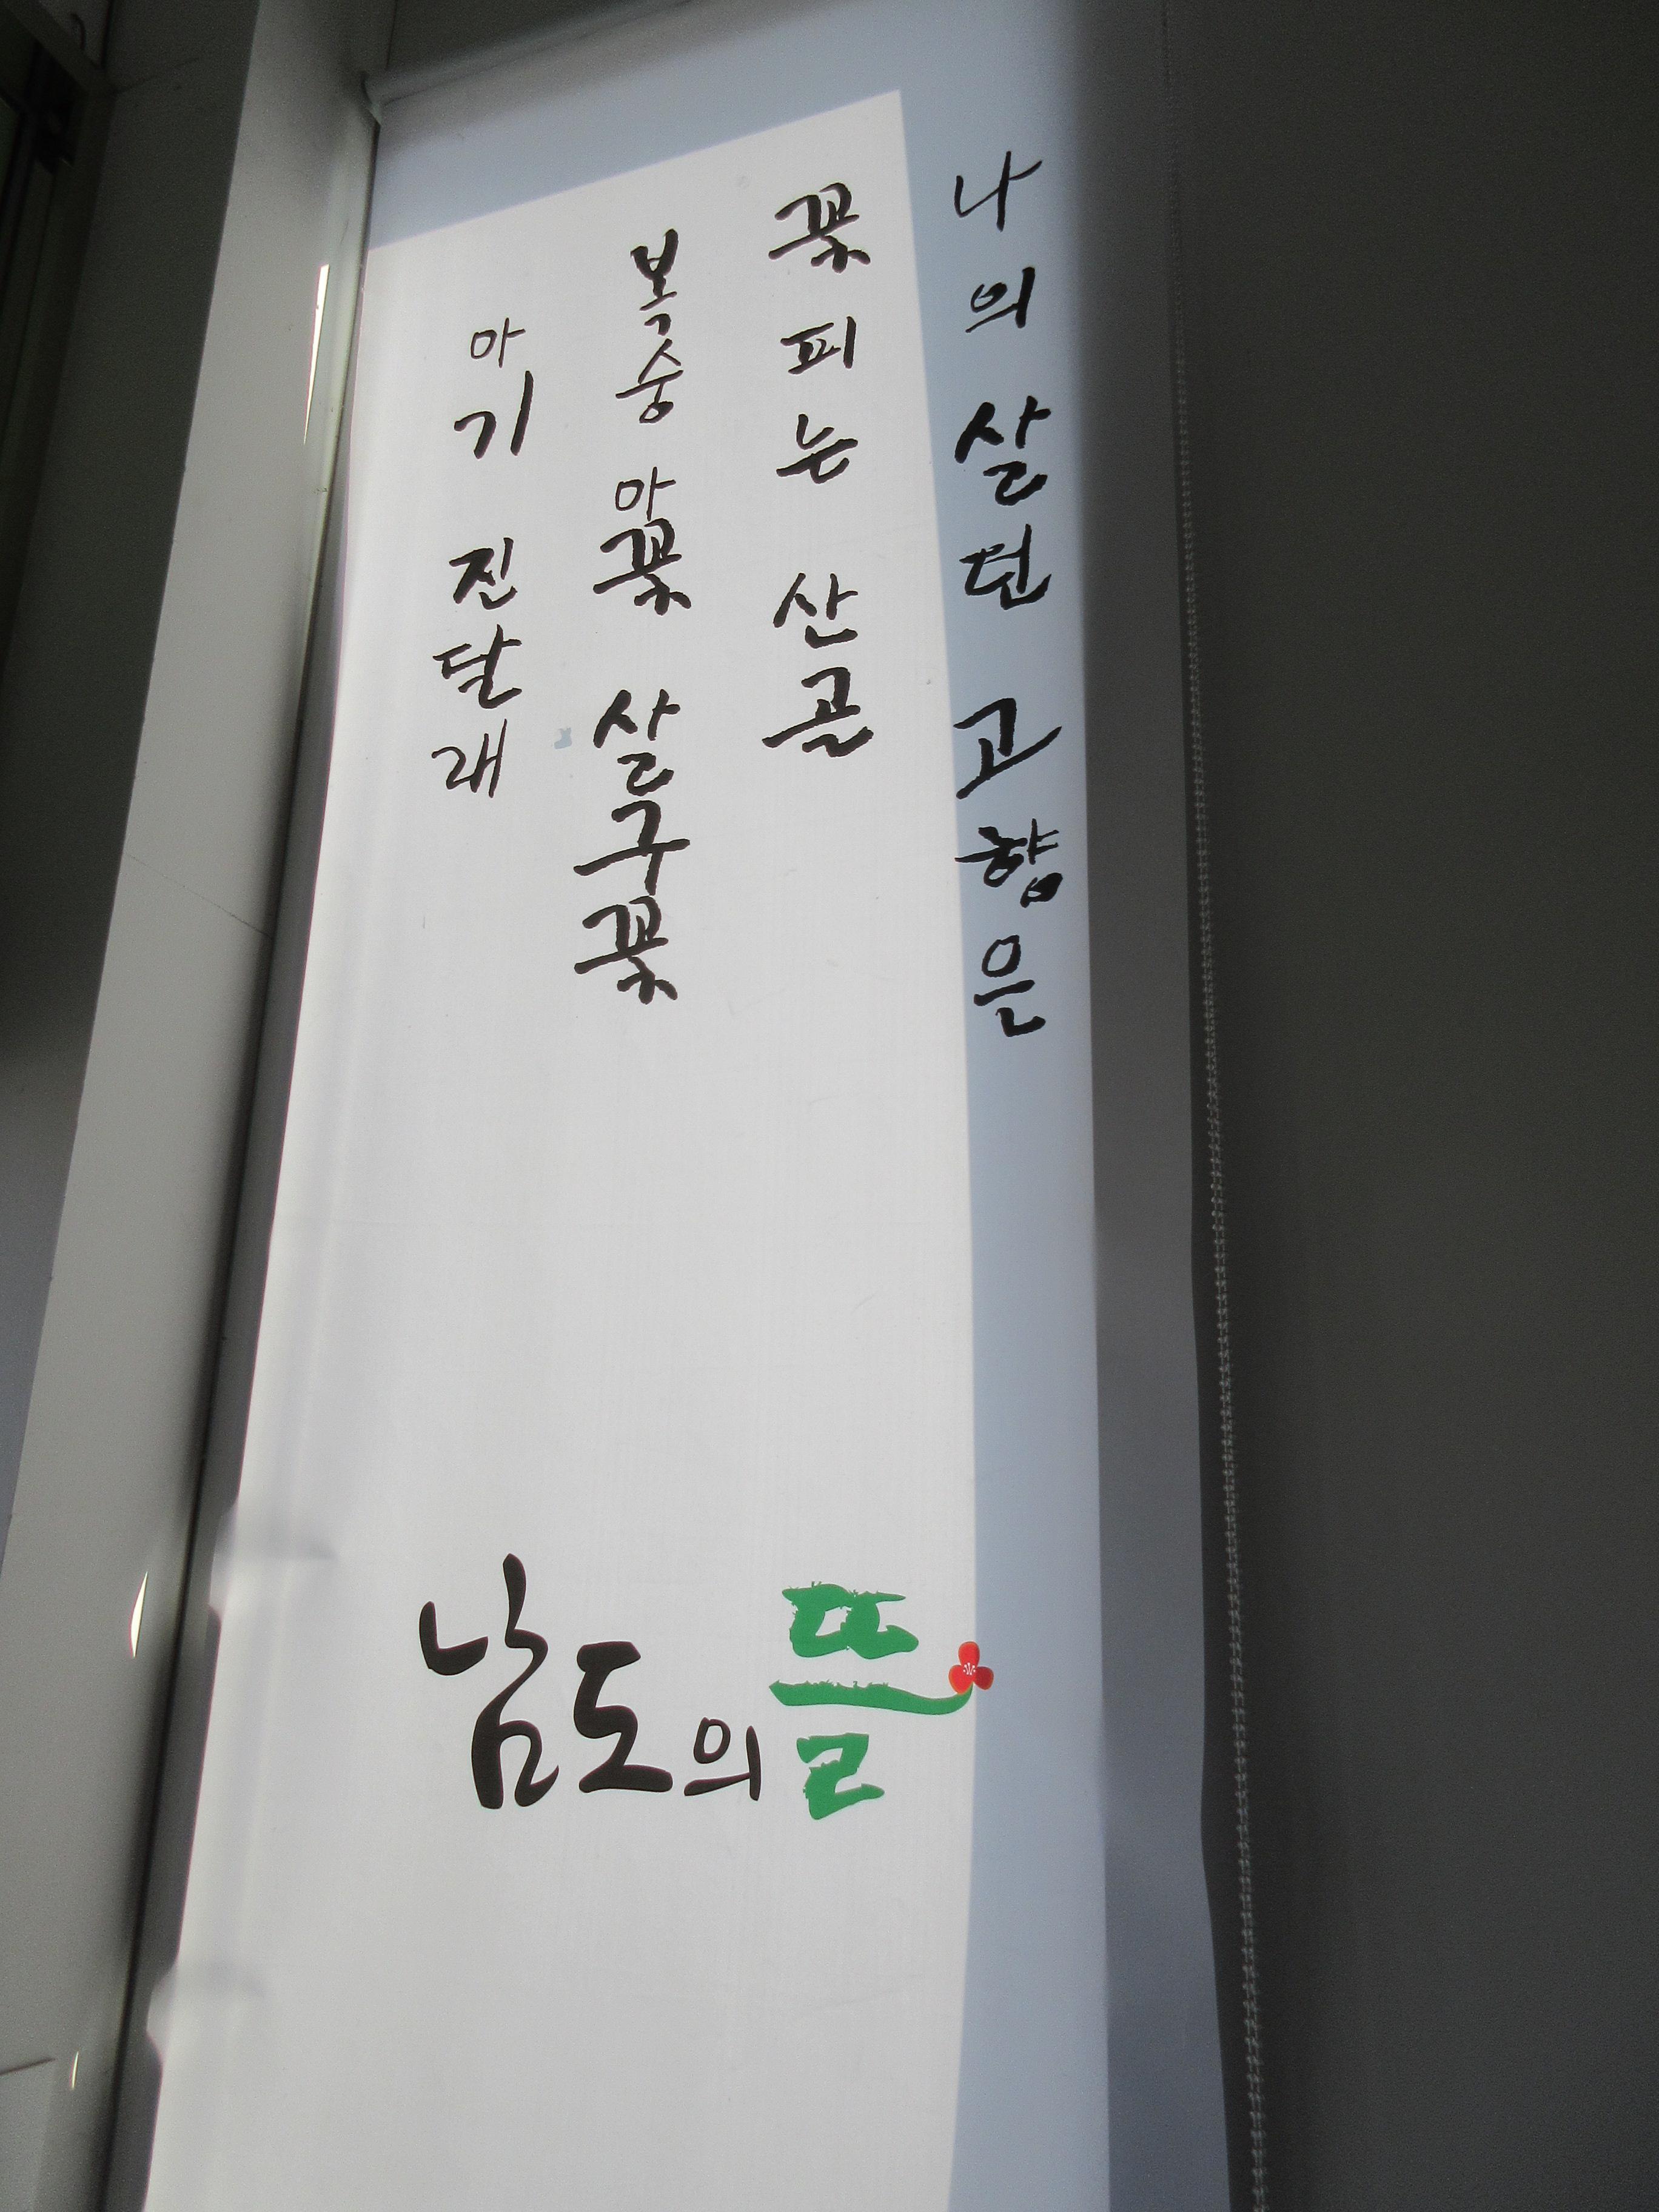 나의 살던 고향은
꽃피는 산골
복숭아꽃 살구꽃
아기 진달래
남도의 뜰